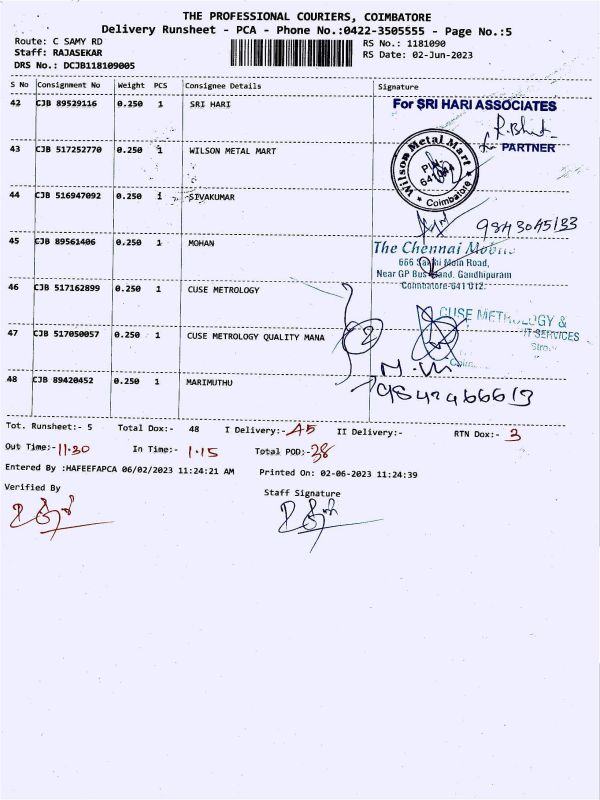 THE PROFESSIONAL COURIERS, COIMBATORE
Delivery Runsheet - PCA - Phone No.:0422-3505555 - Page No.:5
Route: C SAMY RD RS No.: 1181090
Staff: RAJASEKAR RS Date: 02-Jun-2023
DRS No.: DCJB118109005
S No Consignment No Weight PCS Consignee Details Signature
42 CJB 89529116 0.250 1 SRI HARI
For SRI HARI ASSOCIATES
PARTNER
43 CJB 517252770 0.250 1 WILSON METAL MART
Wilson Metal Mart
Coimbatore
44 CJB 516947092 0.250 1 SIVAKUMAR
9843045133
45 CJB 89561406 0.250 1 MOHAN
The Chennai
Main Road,
Near GP Bus Stand. Gandhipuram
Coimbatore-641 012.
46 CJB 517162899 0.250 1 CUSE METROLOGY
2
CUSE METROLOGY &
IT SERVICES
47 CJB 517050057 0.250 1 CUSE METROLOGY QUALITY MANA
48 CJB 89420452 0.250 1 MARIMUTHU
Tot. Runsheet:- 5 Total Dox:- 48 I Delivery:- 45 II Delivery:- RTN Dox:- 3
Out Time:- 11.30 In Time:- 1.15 Total POD:- 38
Entered By :HAFEEFAPCA 06/02/2023 11:24:21 AM Printed On: 02-06-2023 11:24:39
Verified By Staff Signature